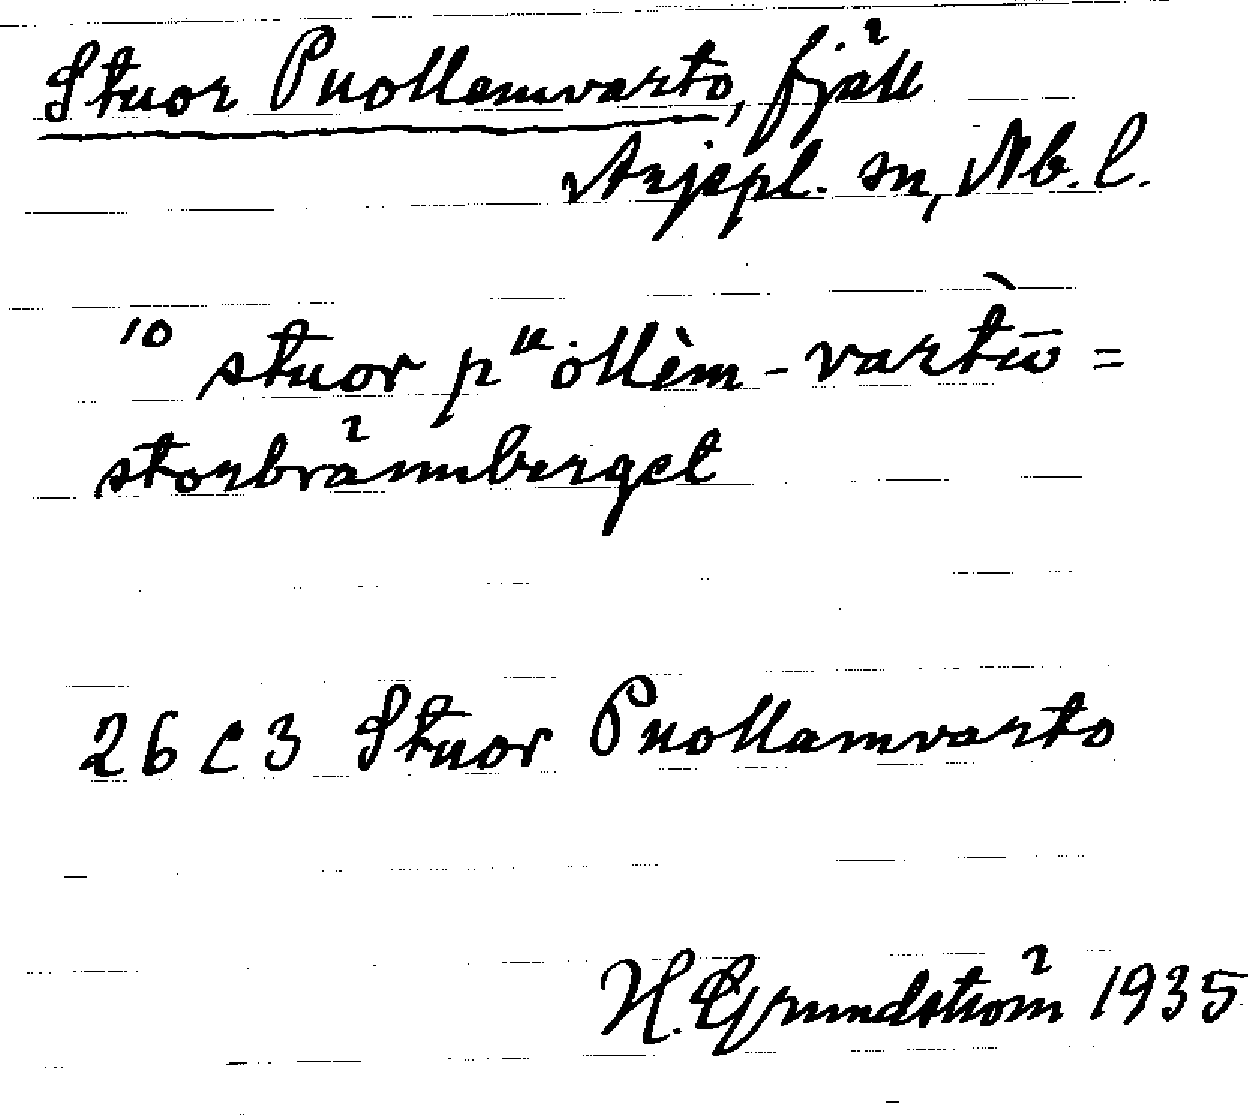 Stuor Puollamvarto, fjäll
Arjepl. sn, Nb. l.
10 stuor pᵘȯllėm-vartū̀ =
storbrännberget
26 C 3 Stuor Puollamvarto
H. Grundström 1935